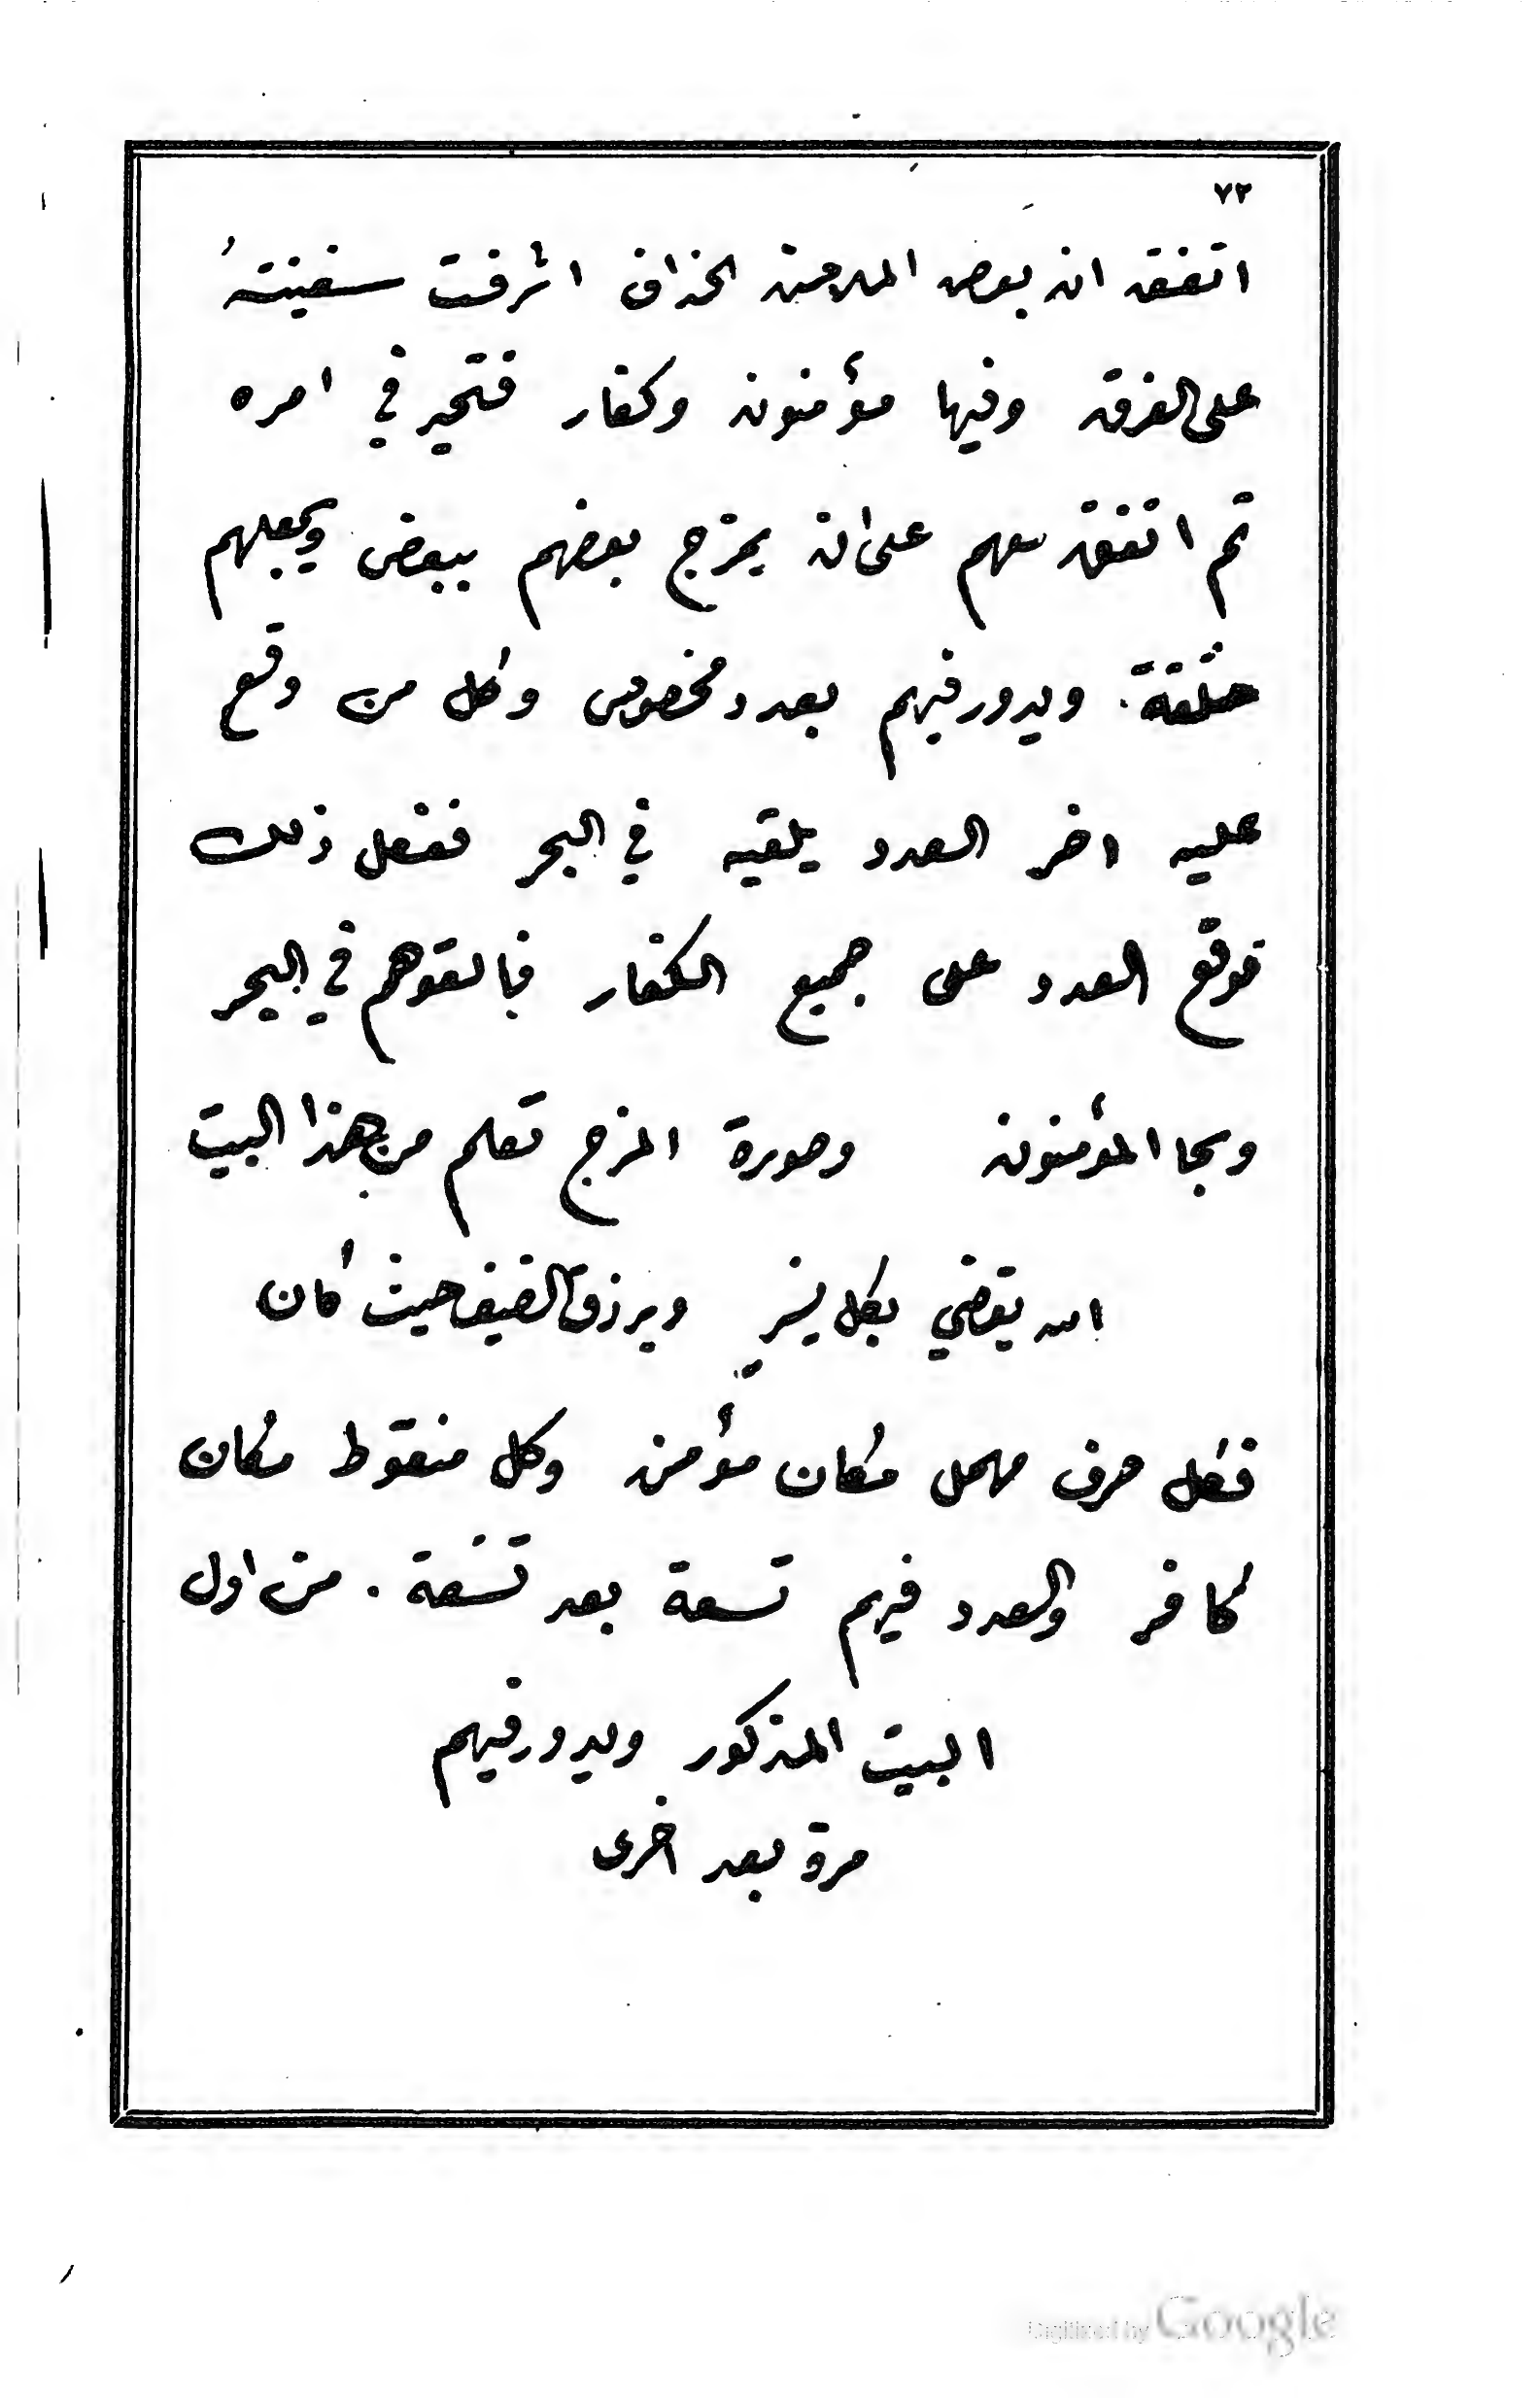 ٧٢
اتفق ان بعض الملاحين الحذاق اشرفت سفينتهُ
على الغرق وفيها مؤمنون وكفار فتحير في امره
ثم اتفق معهم على ان يمزج بعضهم ببعض ويجعلهم
حلقة ويدور فيهم بعدد مخصوص وكل من وقع
عليه اخر العدد يلقيه في البحر ففعل ذلك
فوقع العدد على جميع الكفار فالقوهم في البحر
ونجا المؤمنون وصورة المزج تعلم من هذا البيت
الله يقضي بكل يسرٍ ويرزق الضيف حيث كان
فكل حرف مهمل مكان مؤمن وكل منقوط مكان
كافر والعدد فيهم تسعة بعد تسعة . من اول
البيت المذكور ويدور فيهم
مرة بعد اخرى
Digitized by Google